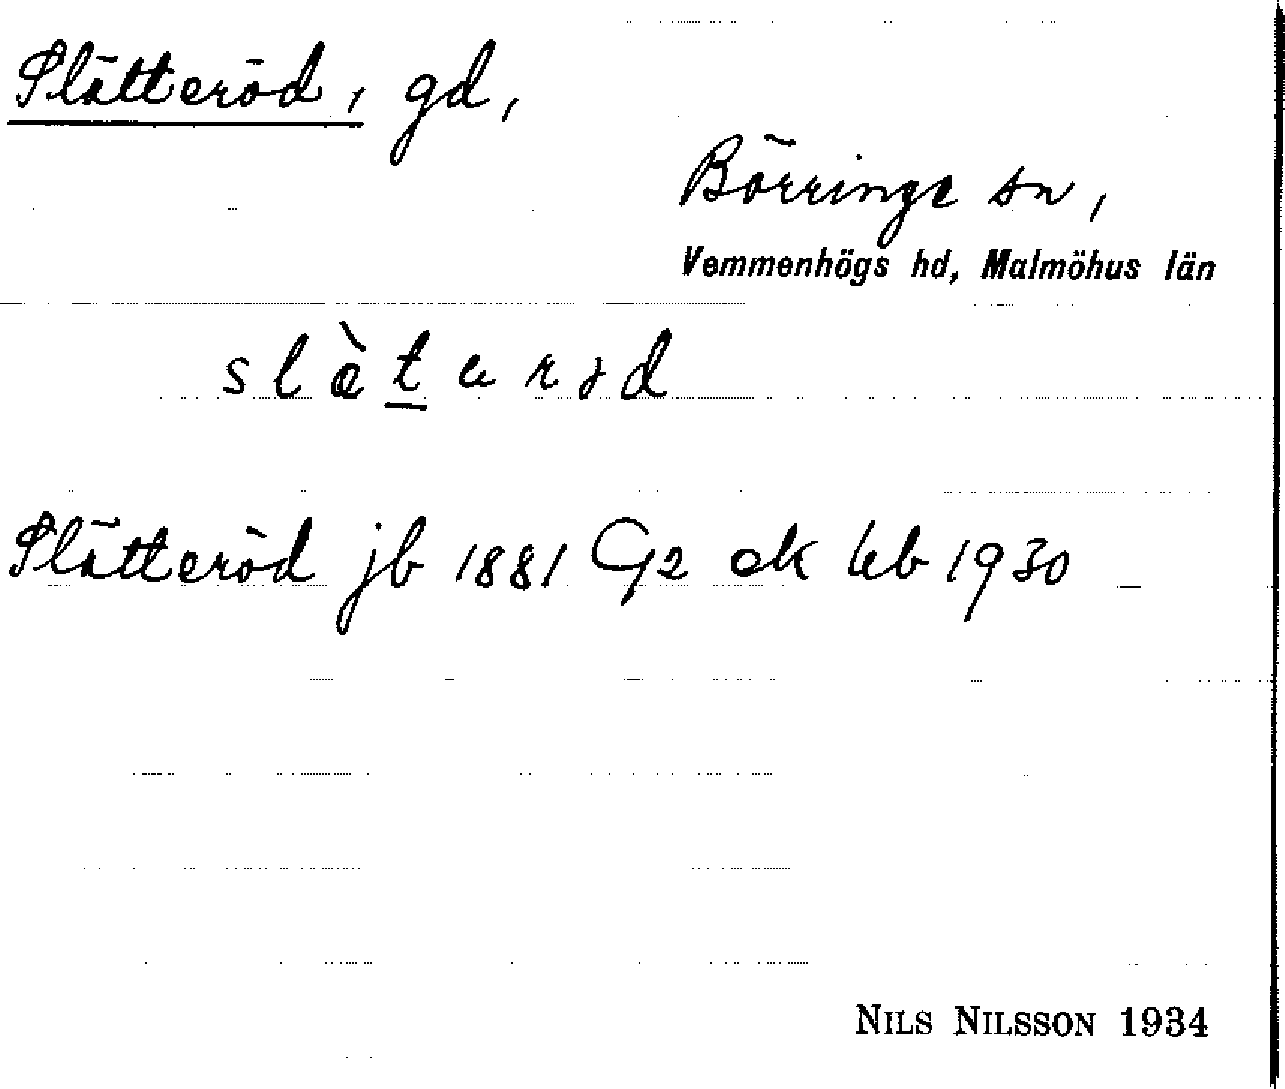 Slätteröd, gd,
Börringe sn,
Vemmenhögs hd, Malmöhus län
Slätteröd jb 1881 G2 ek kb 1930
NILS NILSSON 1934